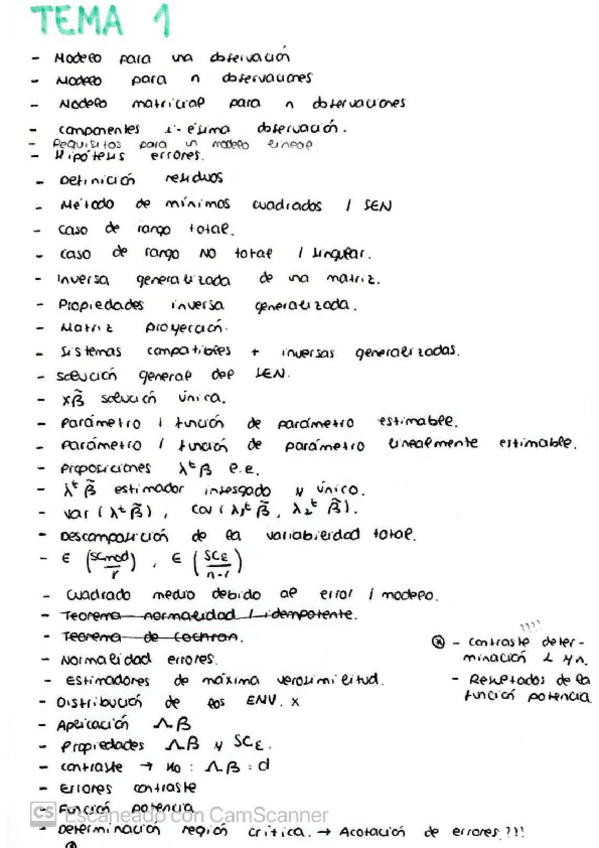 TEMA 1
- Modelo para una observación
- Modelo para n observaciones
- Modelo matricial para n observaciones
- componentes i-ésima observación.
- Requisitos para un modelo lineal
- Hipótesis errores.
- Definición residuos
- Método de mínimos cuadrados / SEN
- caso de rango total.
- caso de rango NO total / singular.
- Inversa generalizada de una matriz.
- Propiedades inversa generalizada.
- Matriz proyección.
- Sistemas compatibles + inversas generalizadas.
- solución general del SEN.
- xβ̃ solución única.
- parámetro / función de parámetro estimable.
- parámetro / función de parámetro linealmente estimable.
- proposiciones λᵗβ l.e.
- λᵗβ̃ estimador insesgado y único.
- var(λᵗβ̃), cov(λ₁ᵗβ̃, λ₂ᵗβ̃).
- Descomposición de la variabilidad total.
- E(SCmod/r), E(SCE/n-r)
- cuadrado medio debido al error / modelo.
- Teorema normalidad / idempotente.
- Teorema de Cochran.
- Normalidad errores.
- Estimadores de máxima verosimilitud.
- Distribución de los EMV. x
- Aplicación Λβ
- propiedades Λβ y SCE.
- contraste → H₀: Λβ = d
- Errores contraste
- Función potencia
- Determinación región crítica. → Acotación de errores???
????
- contraste deter-
minación L y Λ.
- Resultados de la
función potencia
CS Escaneado con CamScanner